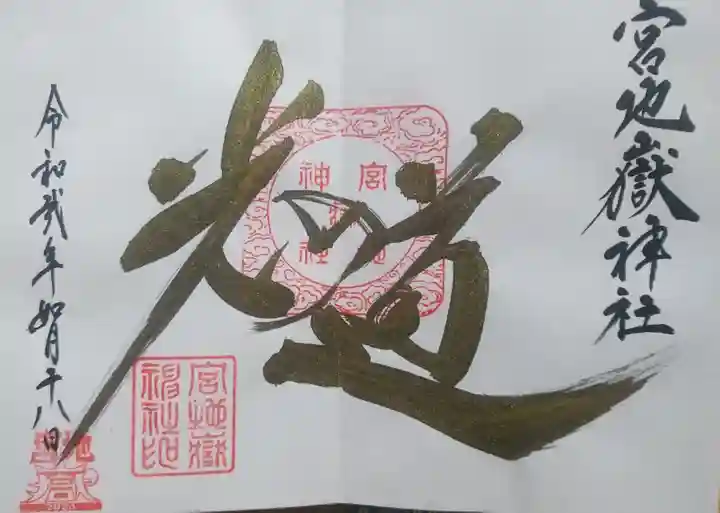 宮地嶽神社
光の道
宮地
嶽
神社
宮地嶽
神社印
令和弐年如月十八日
宮地
嶽